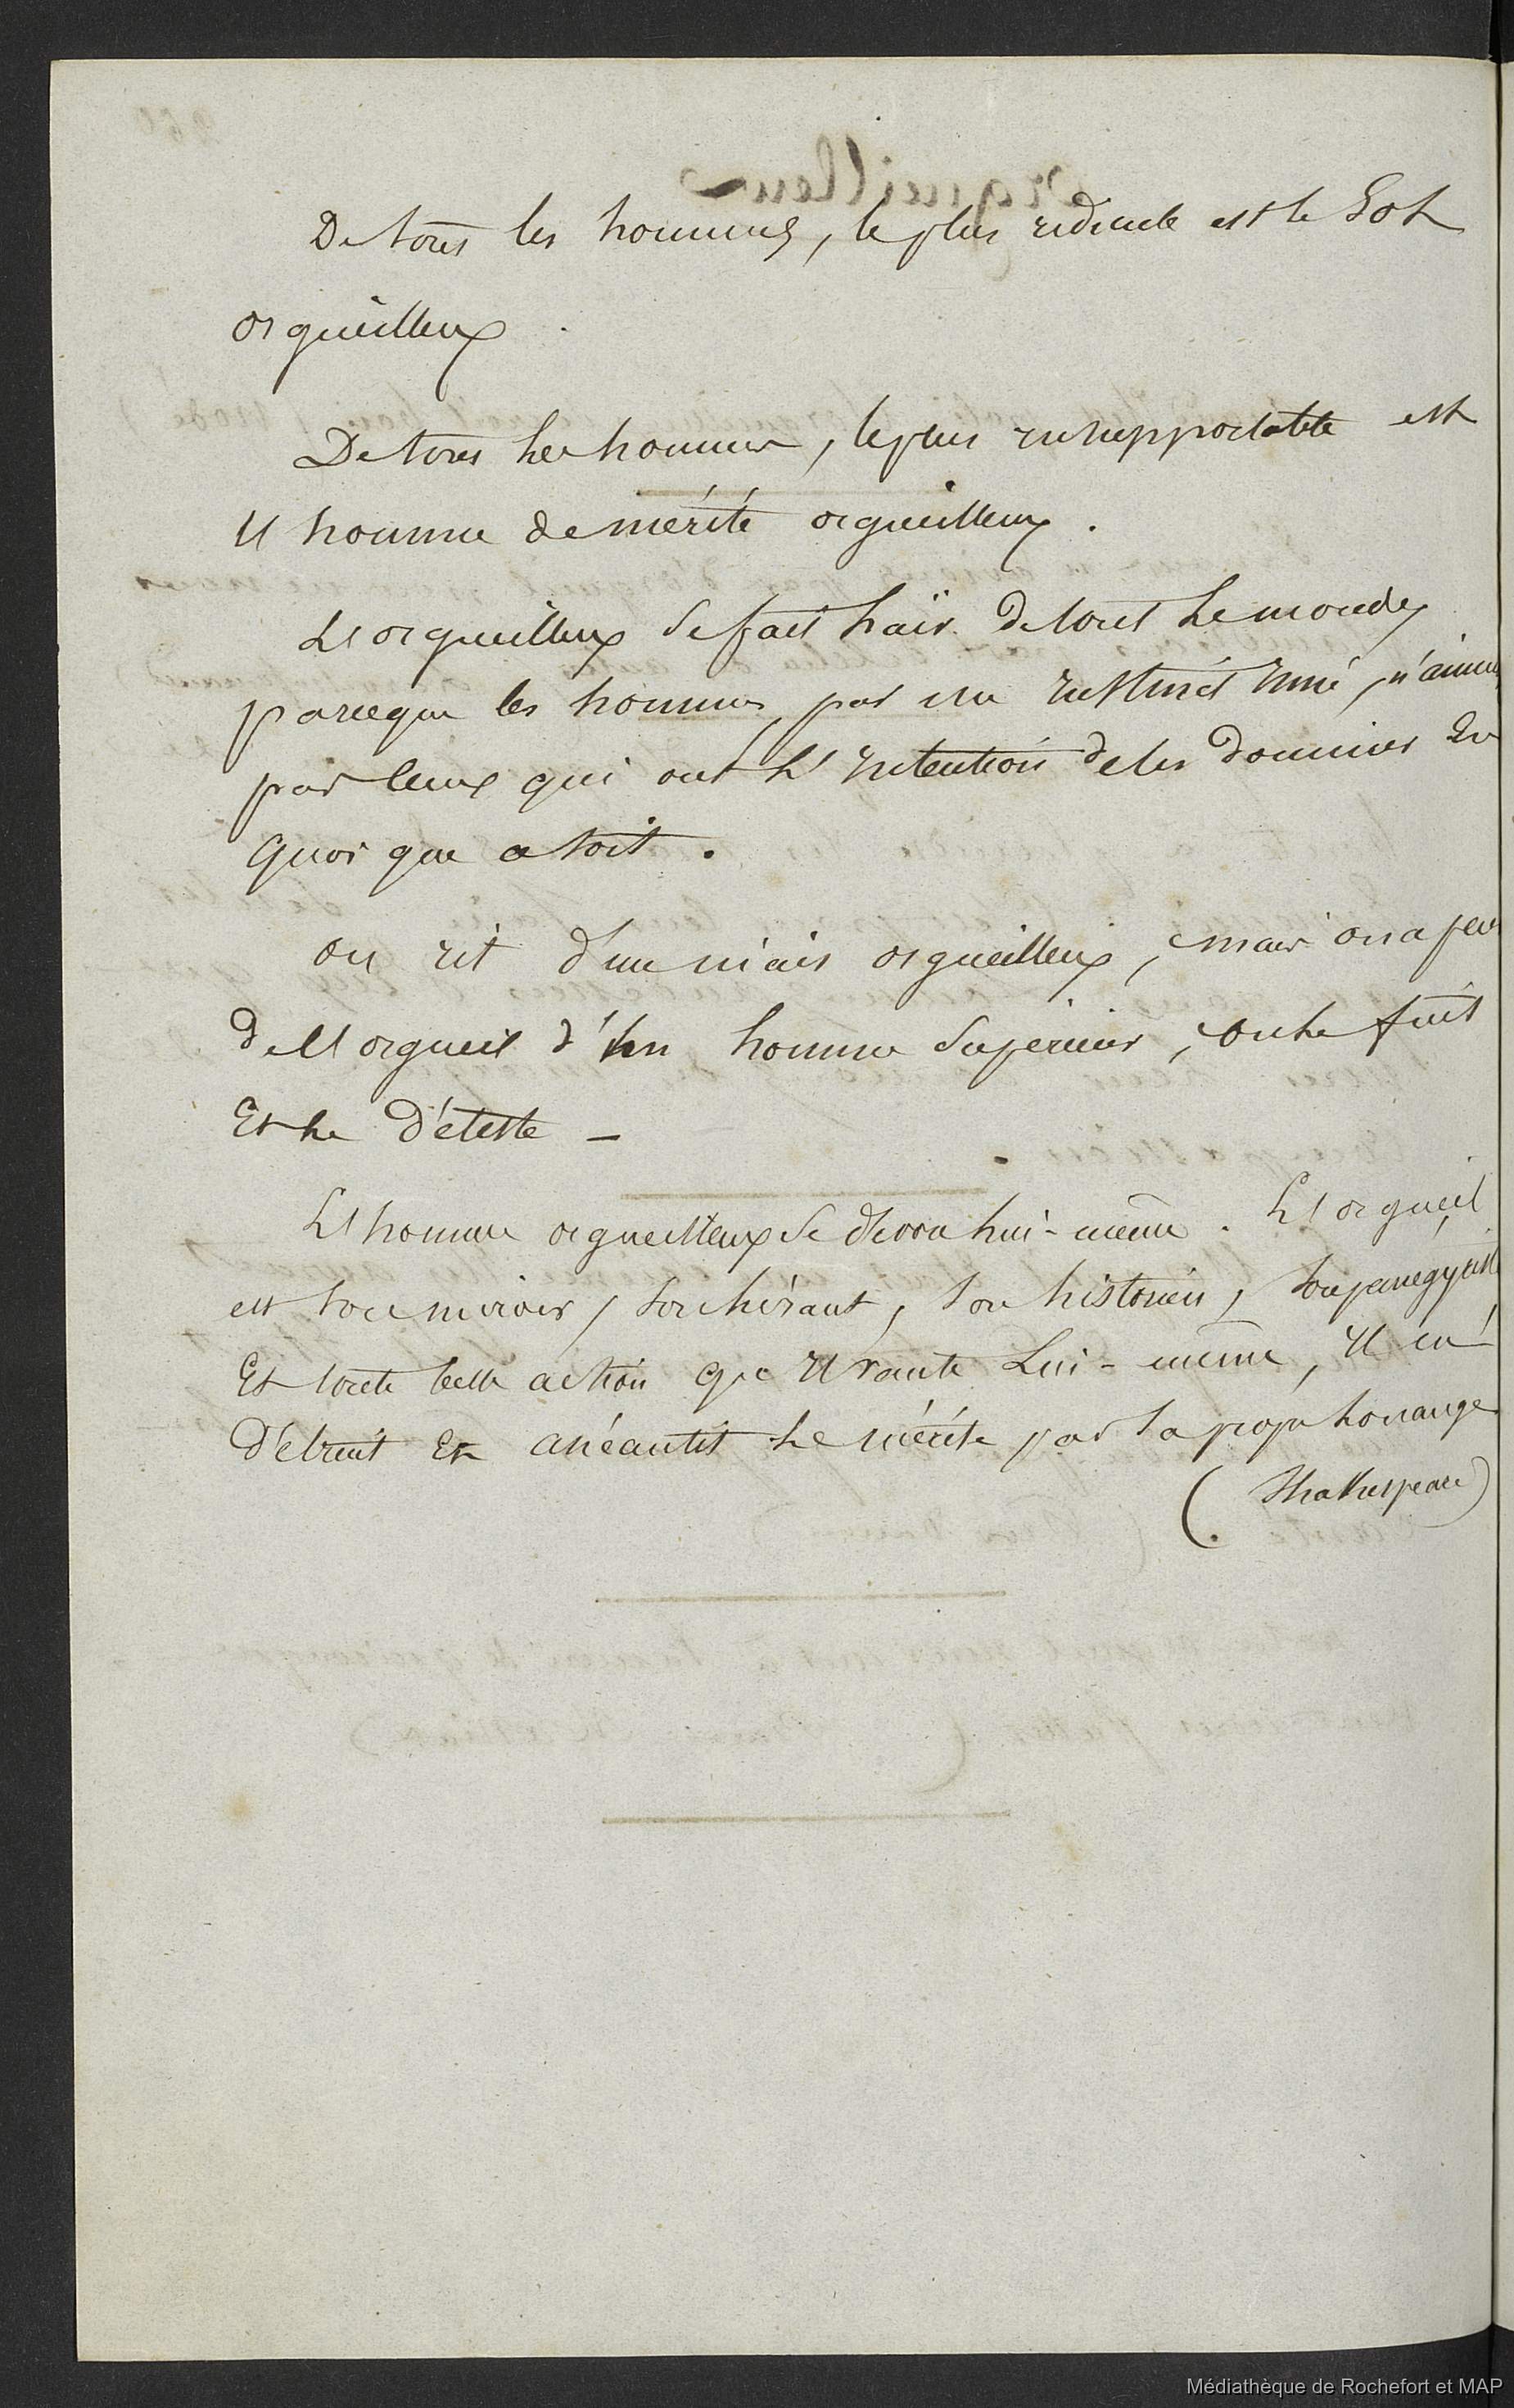 De tous les hommes, le plus ridicule est le Sot
orgueilleux.
De tous les hommes, le plus insupportable est
l'homme de mérite orgueilleux.
L'orgueilleux se fait haïr de tout le monde,
parceque les hommes, par un instinct inné, n'aiment
pas ceux qui ont l'intention de les dominer en
quoi que ce soit.
On rit d'un niais orgueilleux, mais on a peur
de l'orgueil d'un homme supérieur, on le fuit
Et le déteste —
L'homme orgueilleux se dévore lui-même. L'orgueil
est son miroir, son héraut, son historien, son panégyriste
Et toute belle action qu'il vante lui-même, il en
détruit et anéantit le mérite par sa propre louange
(Shakespeare)
Médiathèque de Rochefort et MAP